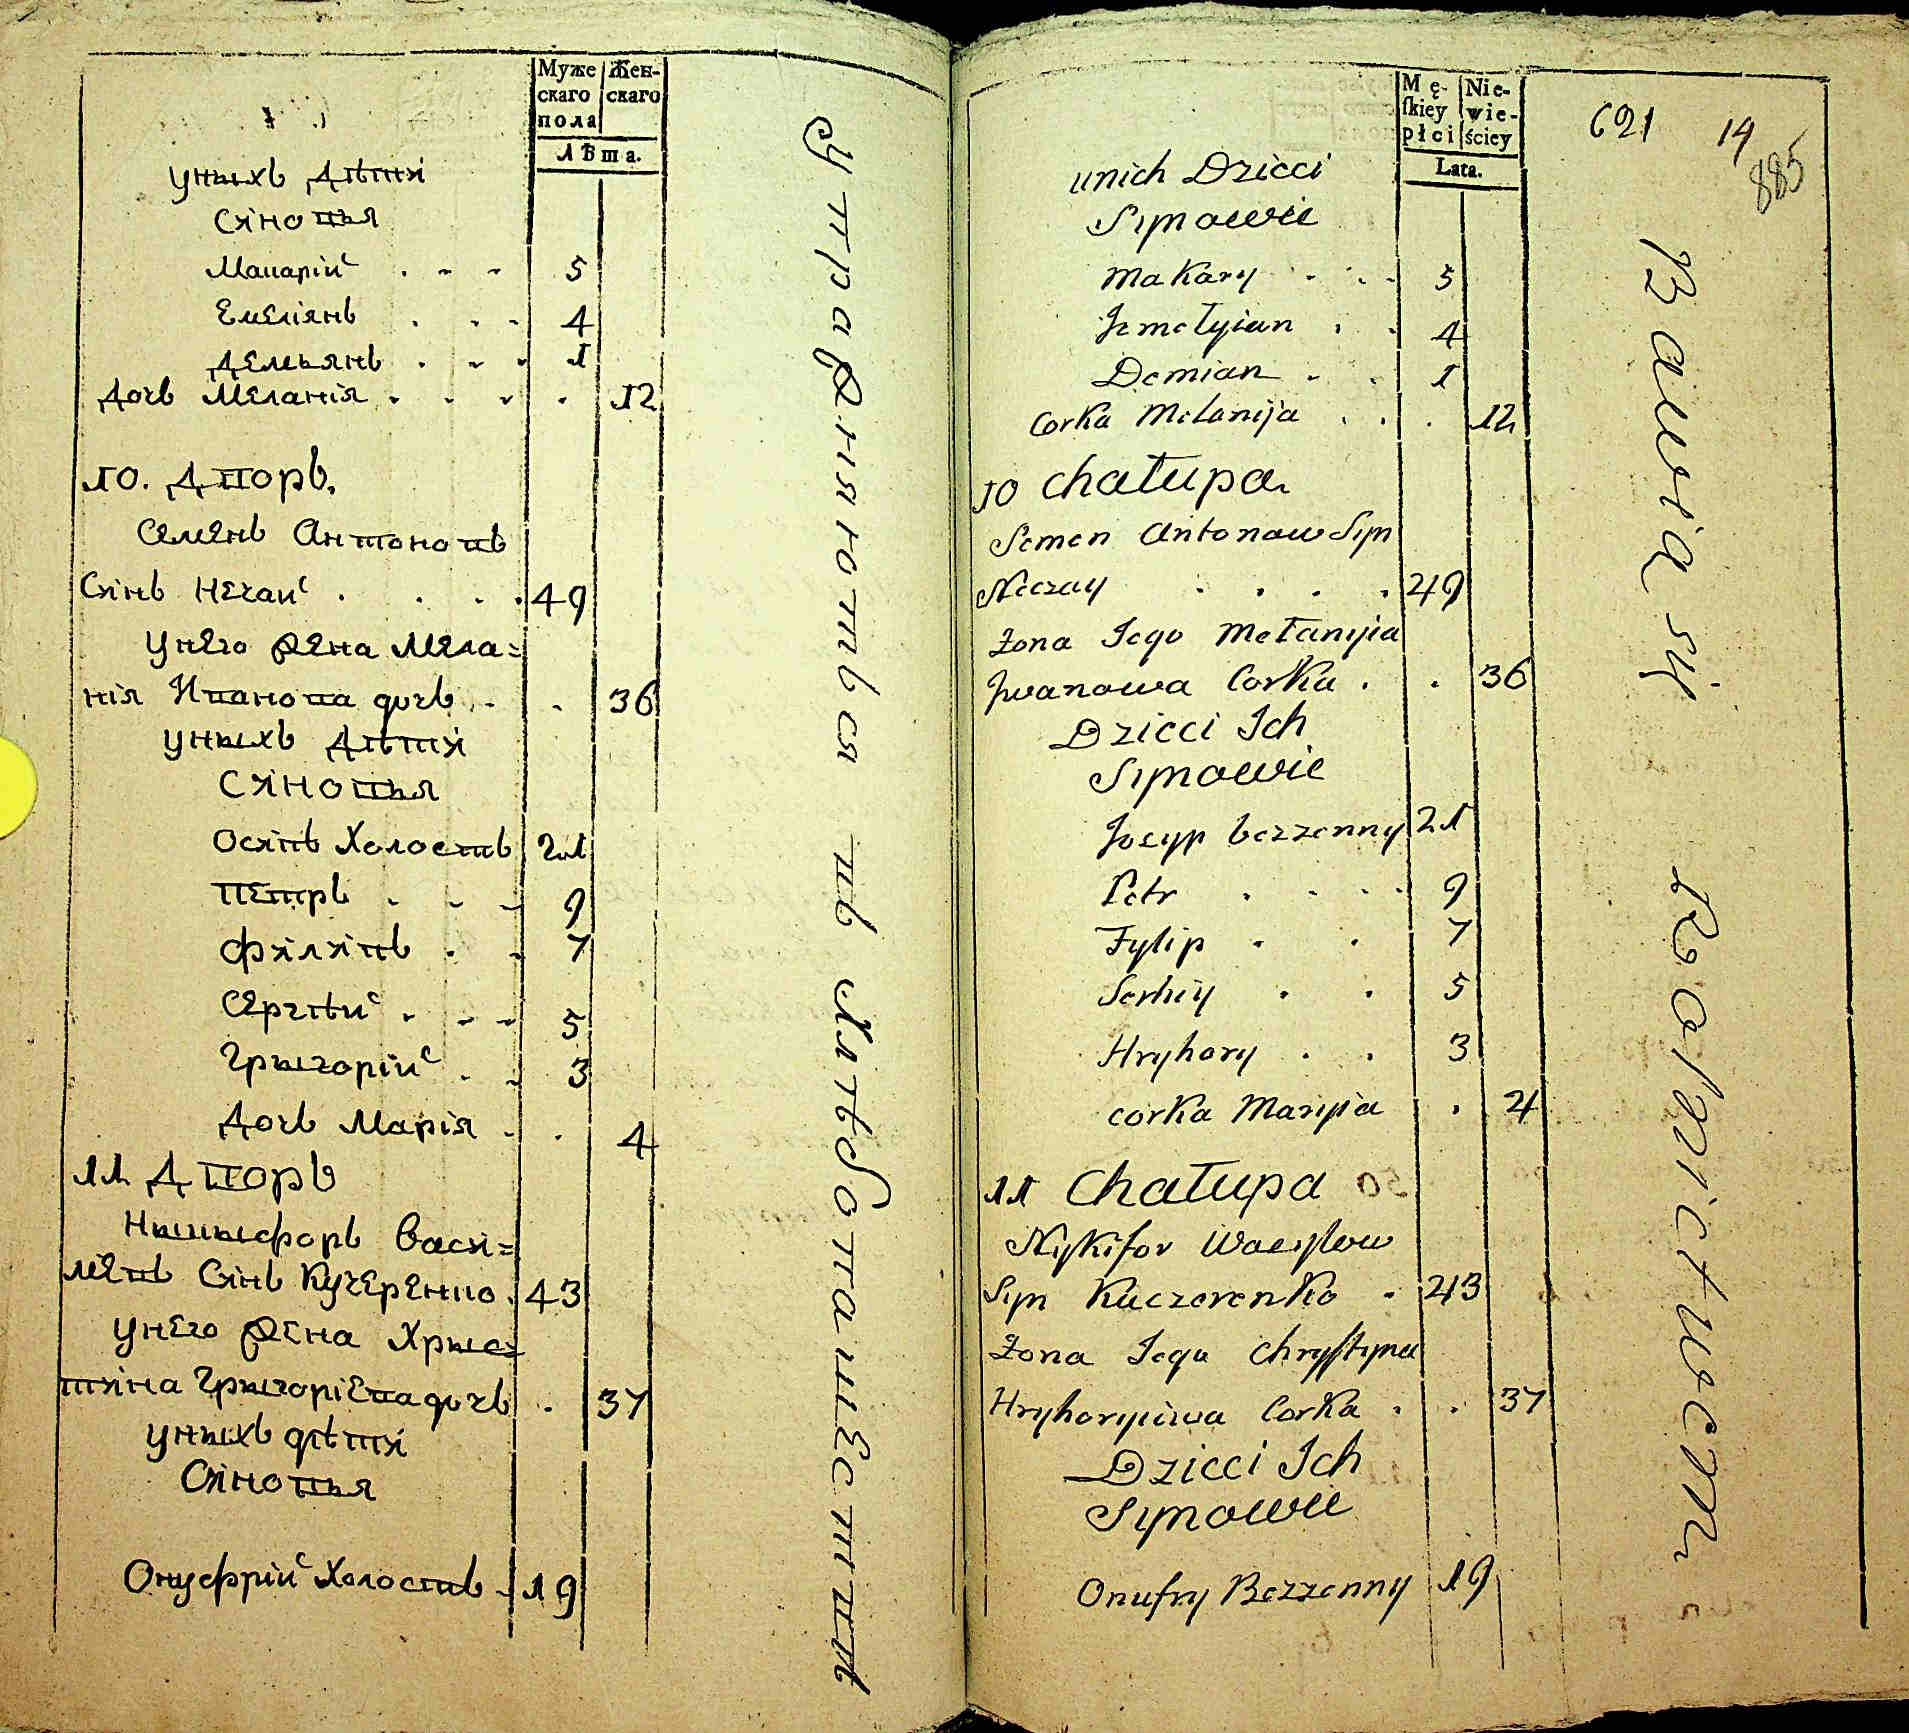 Муже
скаго
пола
Жен-
скаго
Лѣта.
уныхъ Дѣтй
Сӥновья
Макарій . - - 5
Емеліянъ . - - 4
Демьянъ . - - 1
Дочь Меланія . . . . 12
10. Дворъ.
Семенъ Антоновъ
Сӥнъ Нечай . . . . 49
унего жена Мела=
нія Иванова дочь . . 36
уныхъ Дѣтй
Сӥновья
Осипъ Холостъ 21
Петръ . - - 9
Филипъ . - 7
Сергѣй . - - 5
Грыгорій . - 3
Дочь Марія . . 4
11 Дворъ
Ныкыфоръ Васи=
лѣвъ Сӥнъ Кучеренко . 43
унего жена Хрыс=
тина Грыгоріева дочь . 37
уныхъ дѣтй
Сӥновья
Онуфрій Холостъ - 19
упражняются въ хлѣбопашествѣ
Mę-
ſkiey
płci
Nie-
wie-
ściey
Lata.
621 14
885
unich Dzieci
Synowie
Makary . . . 5
Jemełyian . . 4
Demian . . 1
Corka Melanija . . . 12
10 Chałupa
Semen Antonow Syn
Nieczay . . . . 49
Zona Jego Mełanyia
Jwanowa Corka . . 36
Dzieci Ich
Synowie
Josyp bezzenny 21
Petr . . . . 9
Fylip . . 7
Serhiy . . 5
Hryhory . . 3
corka Maryia . 4
11 Chałupa
Nykifor Wasylow
Syn Kuczerenko . 43
Zona Jego Chryſtyna
Hryhoryiwa Corka . . 37
Dzieci Ich
Synowie
Onufry Bezzenny 19
Bawią się Rolnictwem